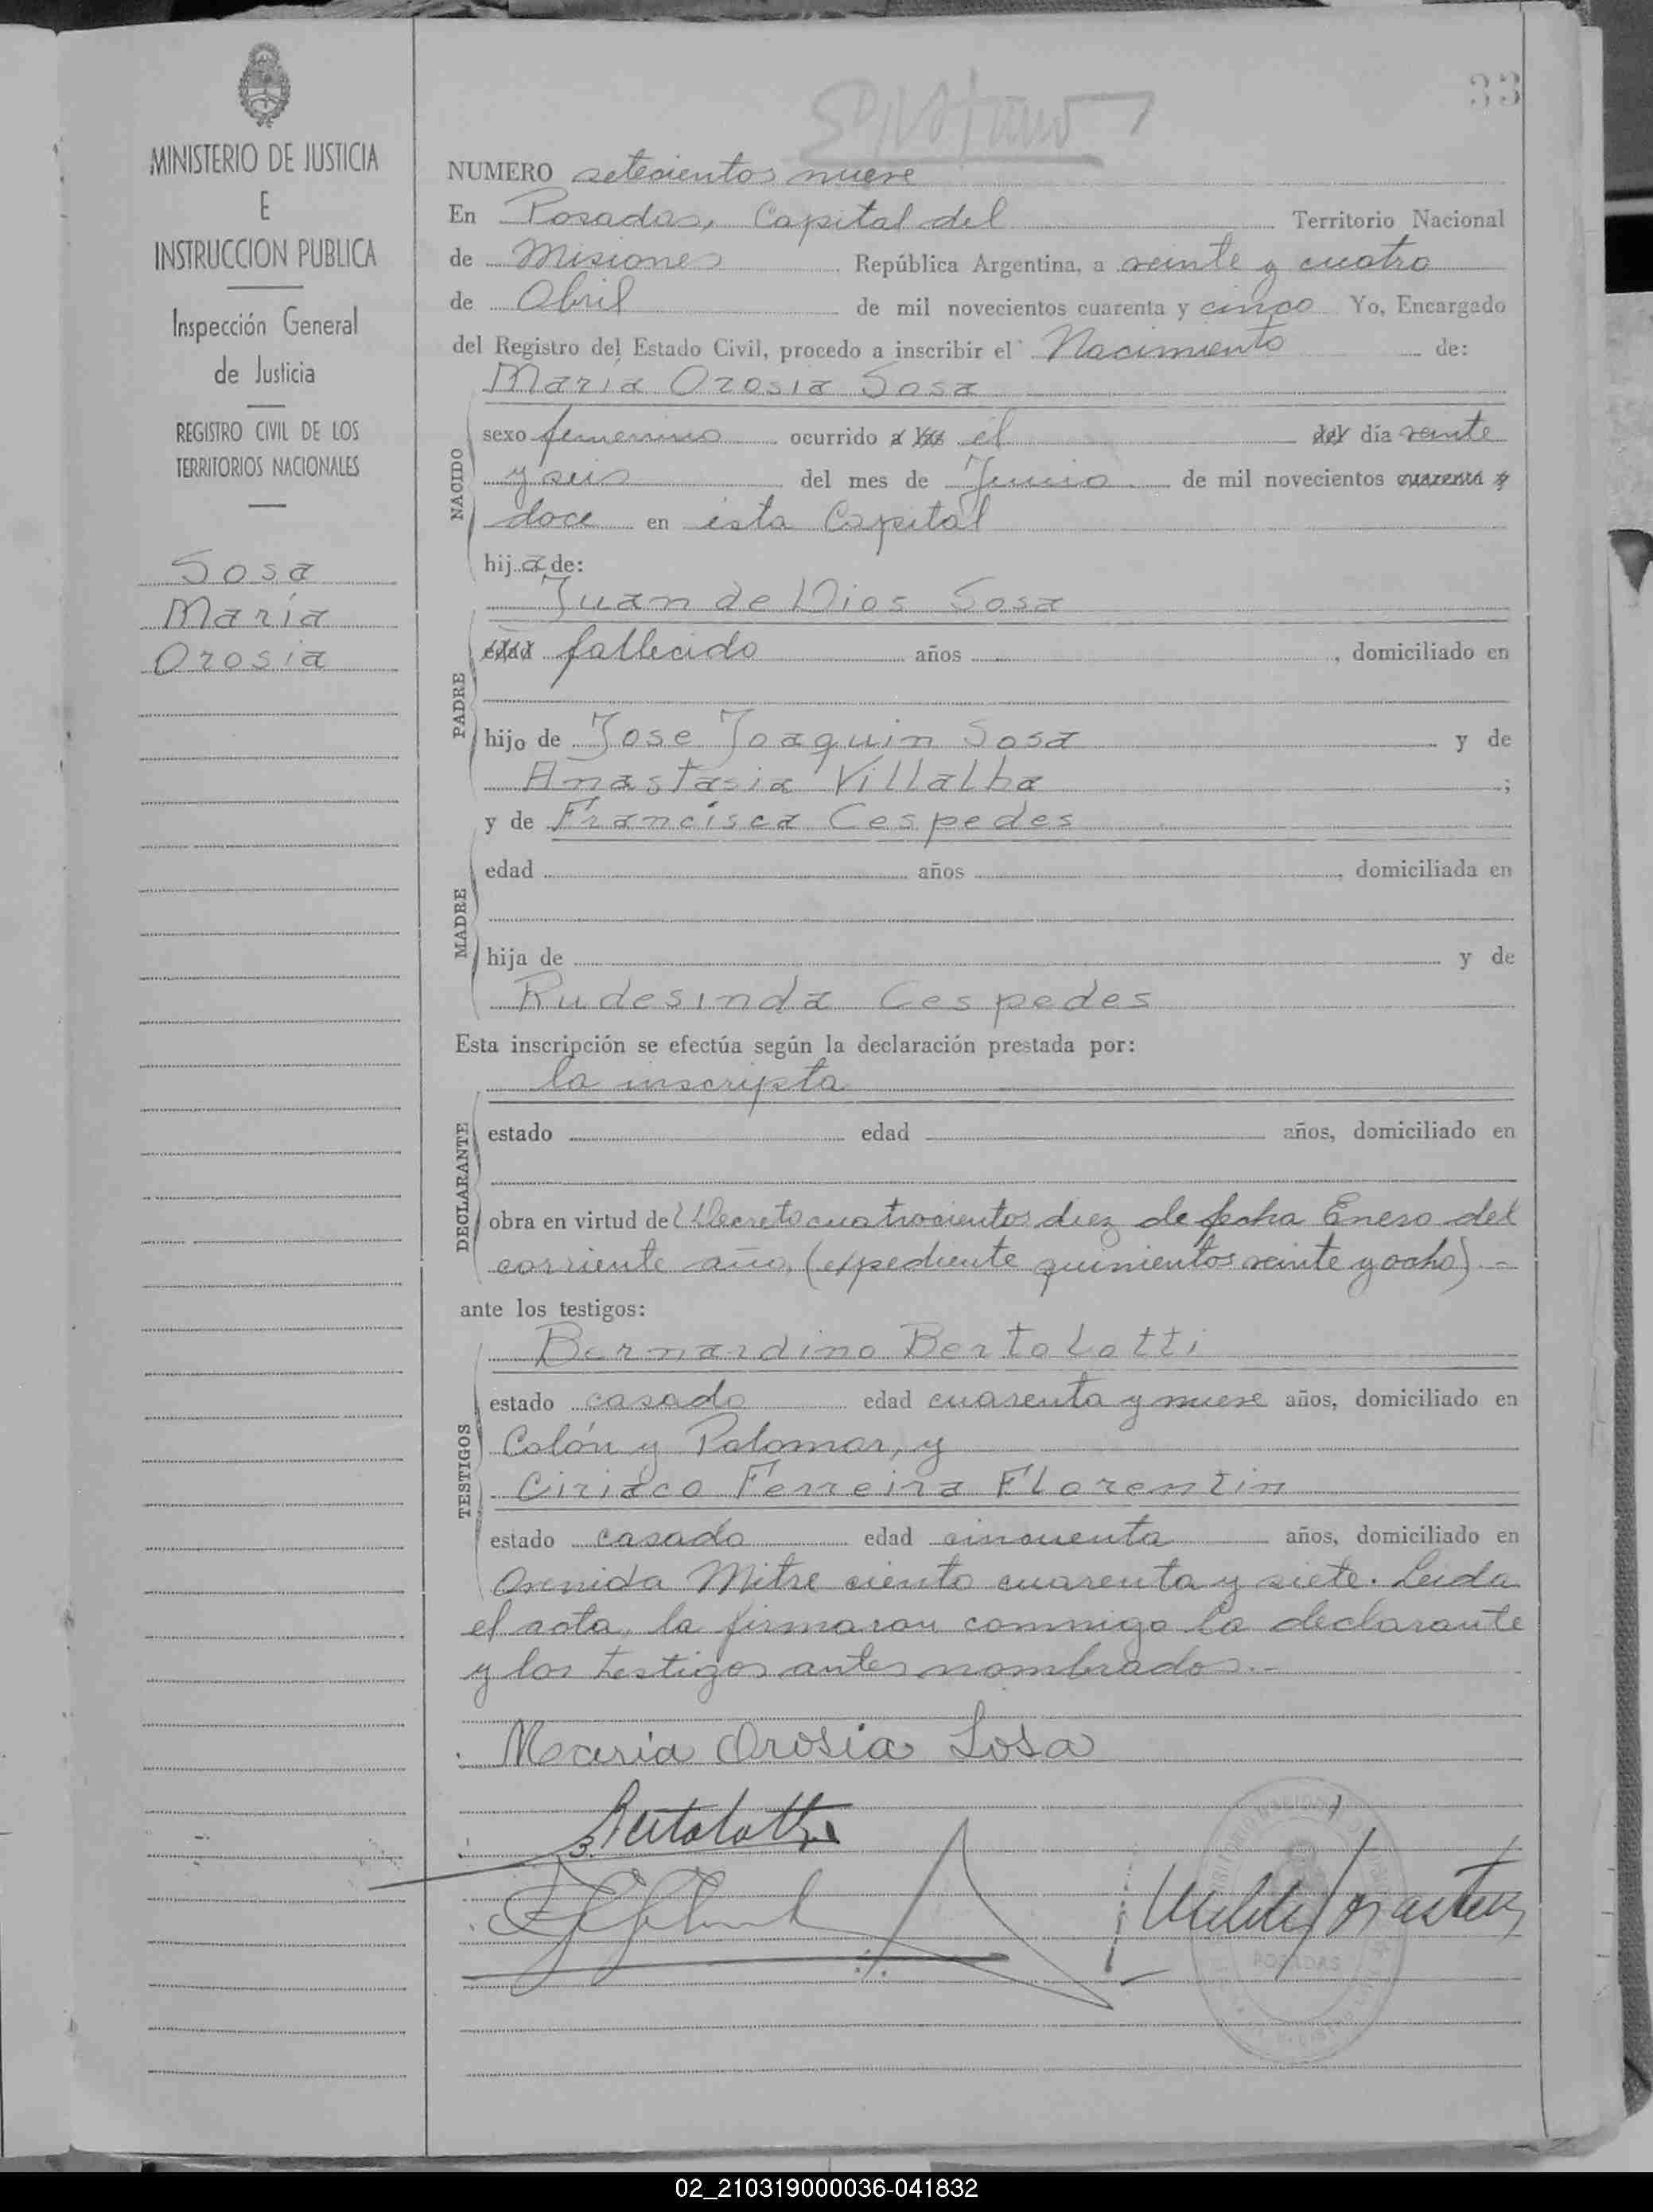 33
MINISTERIO DE JUSTICIA
E
INSTRUCCION PUBLICA
Inspección General
de Justicia
REGISTRO CIVIL DE LOS
TERRITORIOS NACIONALES
Sosa
María
Orosia
NUMERO setecientos nueve
En Posadas, Capital del Territorio Nacional
de Misiones República Argentina, a veinte y cuatro
de Abril de mil novecientos cuarenta y cinco Yo, Encargado
del Registro del Estado Civil, procedo a inscribir el Nacimiento de:
María Orosia Sosa
NACIDO
sexo femenino ocurrido a las el del día veinte
y seis del mes de Junio de mil novecientos cuarenta y
doce en esta Capital
hija de:
Juan de Dios Sosa
PADRE
edad fallecido años , domiciliado en
hijo de Jose Joaquin Sosa y de
Anastasia Villalba ;
y de Francisca Cespedes
MADRE
edad años , domiciliada en
hija de y de
Rudesinda Cespedes
Esta inscripción se efectúa según la declaración prestada por:
la inscripta
DECLARANTE
estado edad años, domiciliado en
obra en virtud de Decreto cuatrocientos diez de fecha Enero del
corriente año, (expediente quinientos veinte y ocho).-
ante los testigos:
TESTIGOS
Bernardino Bertolotti
estado casado edad cuarenta y nueve años, domiciliado en
Colón y Palomar, y
Ciriaco Ferreira Florentin
estado casado edad cincuenta años, domiciliado en
Avenida Mitre ciento cuarenta y siete. Leida
el acta, la firmaron conmigo la declarante
y los testigos antes nombrados.-
Maria Orosia Sosa
B. Bertolotti
POSADAS
02_210319000036-041832